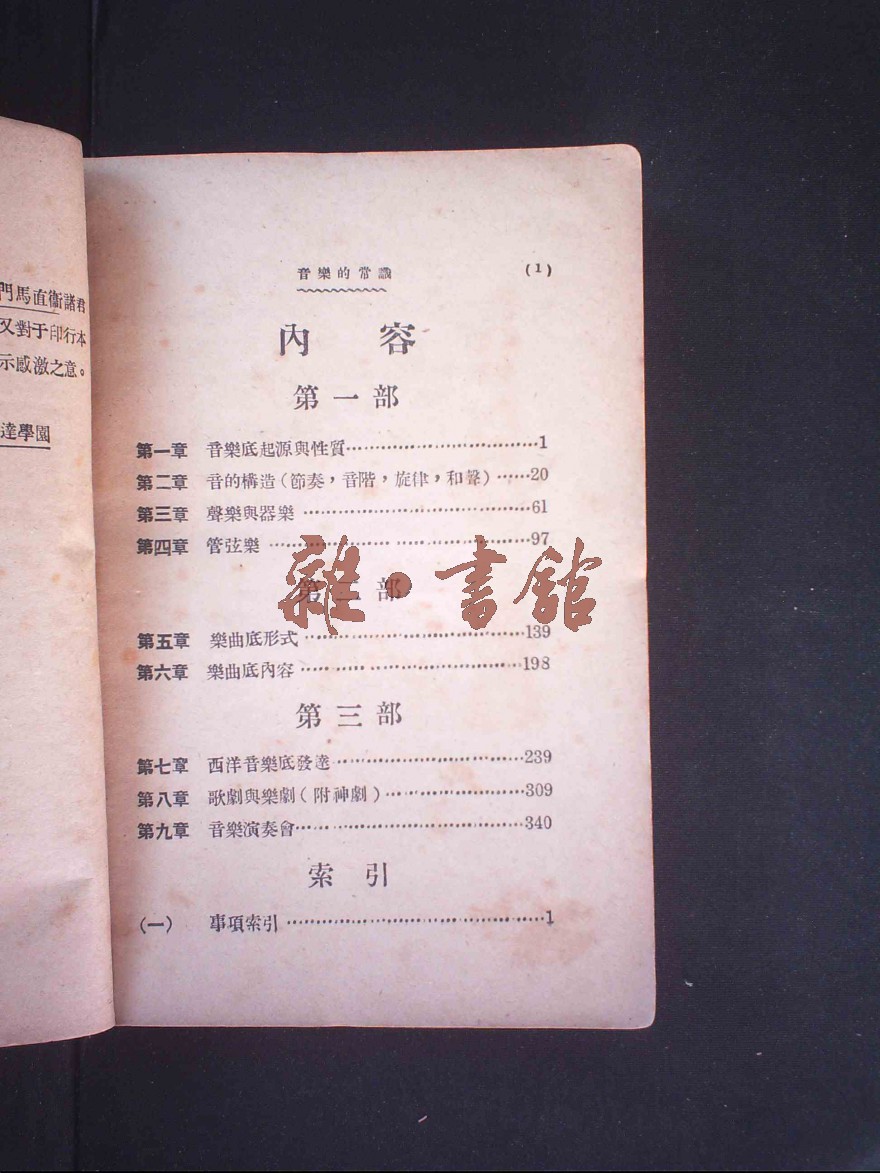 門馬直衞諸君
又對于印行本
示感激之意。
達學園
音樂的常識 (1)
內容
第一部
第一章 音樂底起源與性質……1
第二章 音的構造(節奏，音階，旋律，和聲)……20
第三章 聲樂與器樂……61
第四章 管弦樂……97
第二部
雜·書館
第五章 樂曲底形式……139
第六章 樂曲底內容……198
第三部
第七章 西洋音樂底發達……239
第八章 歌劇與樂劇(附神劇)……309
第九章 音樂演奏會……340
索引
(一) 事項索引……1